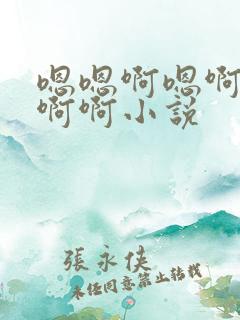 嗯嗯啊嗯啊
啊啊小説
張永侠
未经同意禁止转载